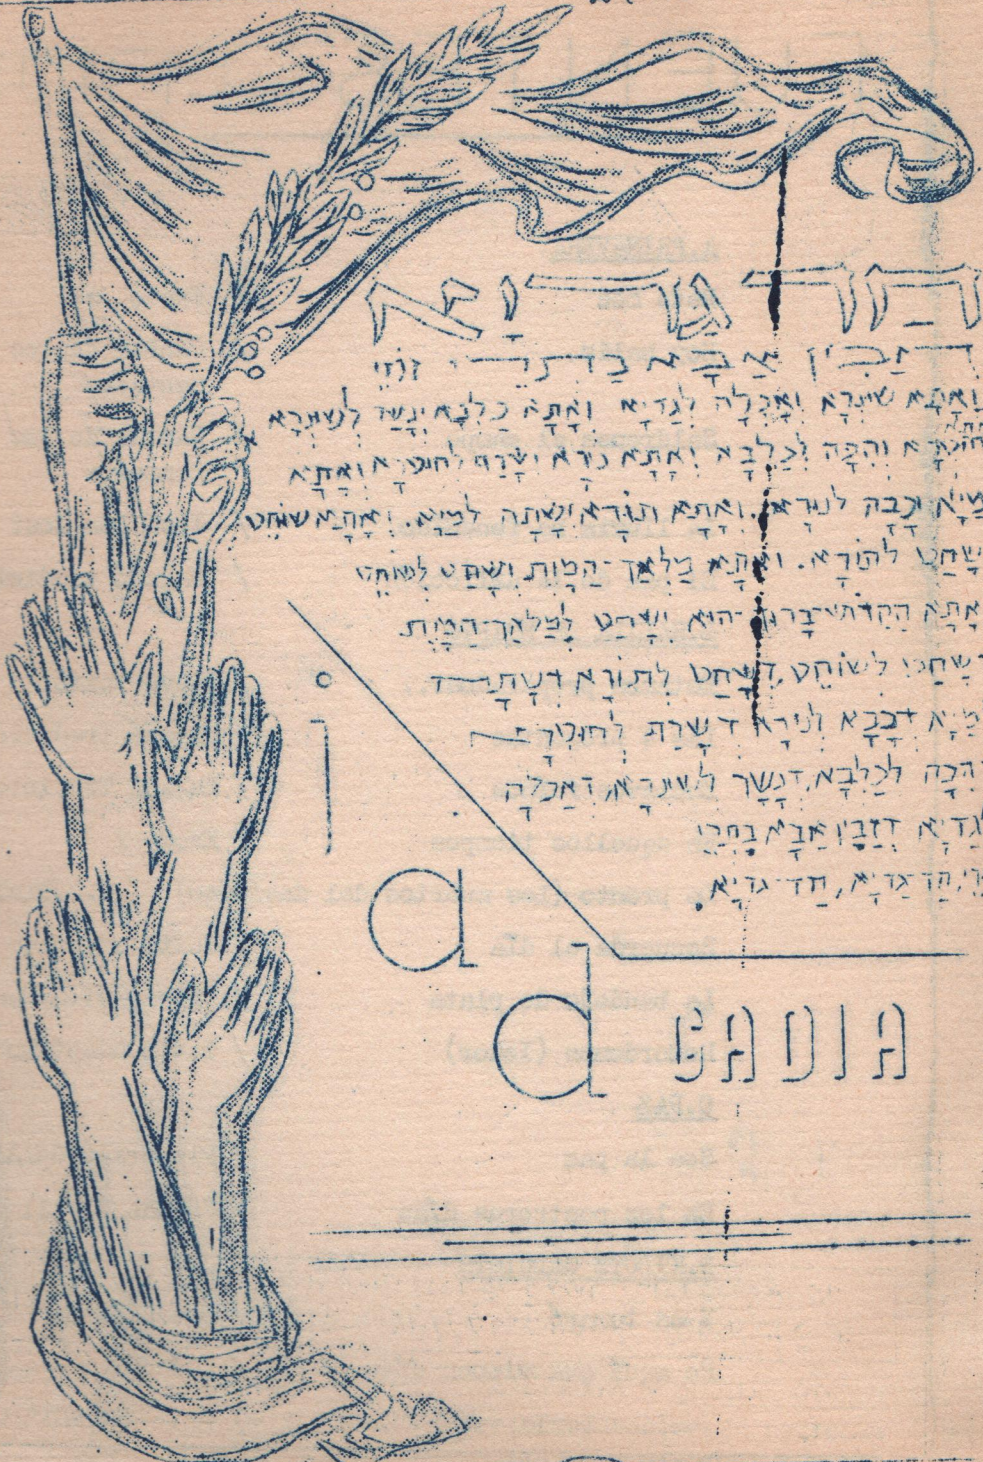 חַד גַּדְיָא
דִּזַבִּין אַבָּא בִּתְרֵי זוּזֵי
וְאָתָא שׁוּנְרָא וְאָכְלָה לְגַדְיָא וְאָתָא כַלְבָּא וְנָשַׁךְ לְשׁוּנְרָא
חוּטְרָא וְהִכָּה לְכַלְבָּא וְאָתָא נוּרָא וְשָׂרַף לְחוּטְרָא וְאָתָא
מַיָּא וְכָבָה לְנוּרָא. וְאָתָא תוֹרָא וְשָׁתָה לְמַיָּא. וְאָתָא שׁוֹחֵט
שָׁחַט לְתוֹרָא. וְאָתָא מַלְאַךְ־הַמָּוֶת וְשָׁחַט לְשׁוֹחֵט
אָתָא הַקָּדוֹשׁ־בָּרוּךְ־הוּא וְשָׁחַט לְמַלְאַךְ־הַמָּוֶת
שָׁחַט לְשׁוֹחֵט, דְּשָׁחַט לְתוֹרָא דְּשָׁתָה
מַיָּא דְּכָבָא לְנוּרָא דְּשָׂרַף לְחוּטְרָא
הִכָּה לְכַלְבָּא, דְּנָשַׁךְ לְשׁוּנְרָא, דְּאָכְלָה
גַדְיָא דְּזַבִּין אַבָּא בִּתְרֵי
חַד־גַּדְיָא, חַד־גַּדְיָא.
J a d
GADIA